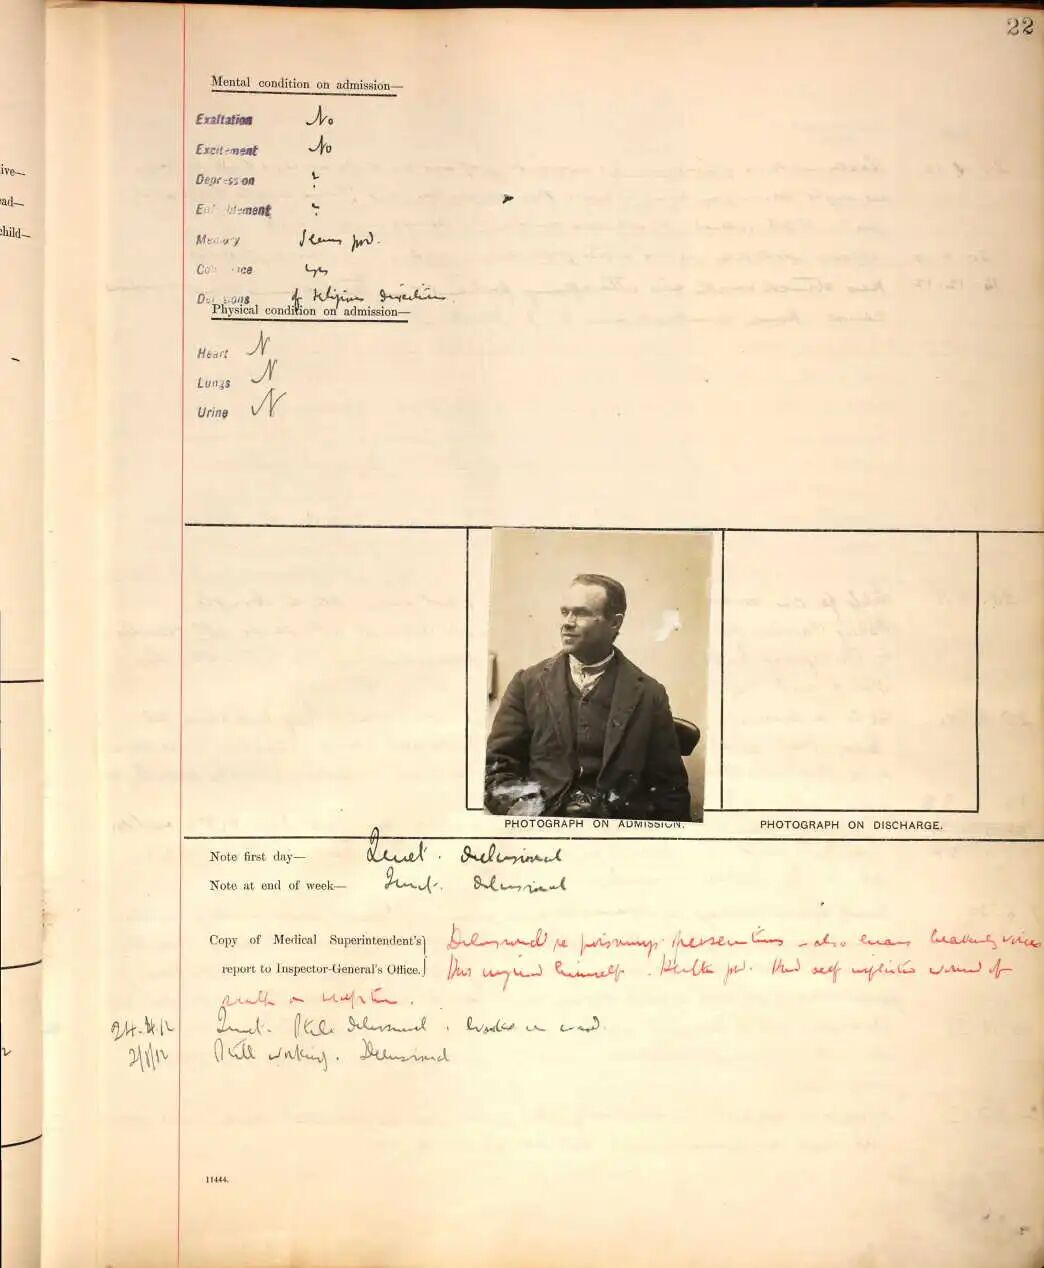 22
Mental condition on admission—
Exaltation No
Excitement No
Depression ?
Enfeeblement ?
Memory Seems gd.
Coherence yes
Delusions of religious direction.
Physical condition on admission—
Heart N
Lungs N
Urine N
ive—
ad—
child—
PHOTOGRAPH ON ADMISSION.
PHOTOGRAPH ON DISCHARGE.
Note first day— Quiet. delusional
Note at end of week— Quiet. delusional
Copy of Medical Superintendent's Delusional re poisoning persecutions – also hears heavenly voices
report to Inspector-General's Office. Has injured himself. Health gd. Had self inflicted wound of
on
Quiet. Still delusional. Works in ward.
Still working. Delusional
11444.